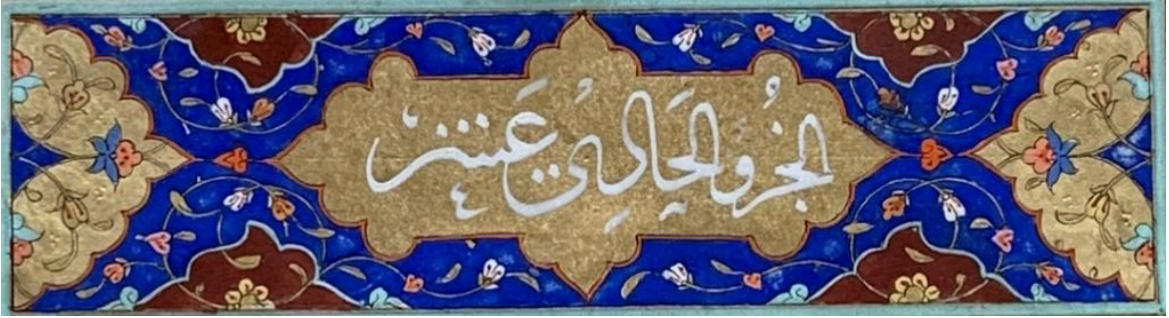 الجُزوُ الحَادِيُ عَشَر